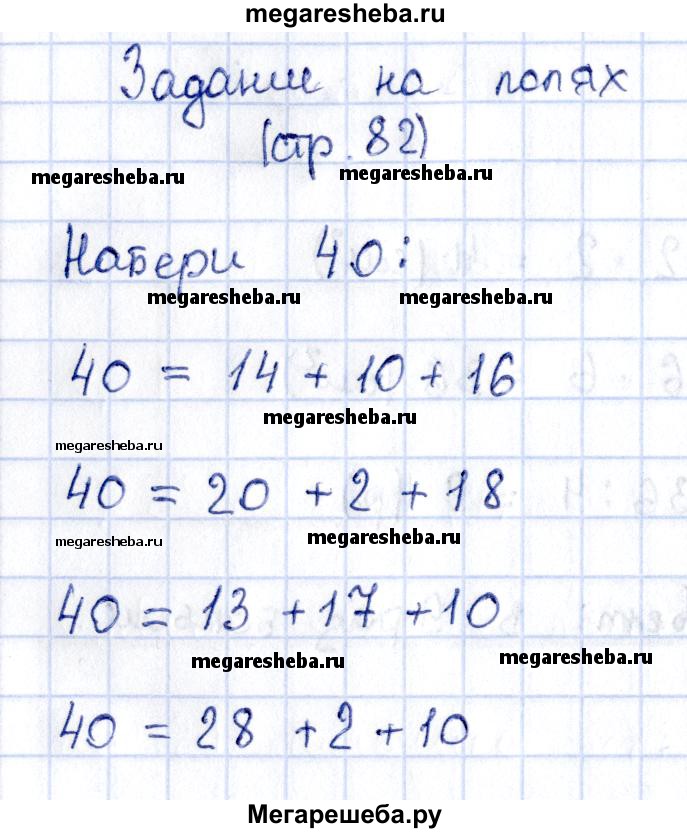 megaresheba.ru
Задание на полях
(стр. 82)
megaresheba.ru megaresheba.ru
Набери 40:
megaresheba.ru megaresheba.ru
40 = 14 + 10 + 16
megaresheba.ru
megaresheba.ru
40 = 20 + 2 + 18
megaresheba.ru megaresheba.ru
40 = 13 + 17 + 10
megaresheba.ru megaresheba.ru
40 = 28 + 2 + 10
Мегарешеба.ру